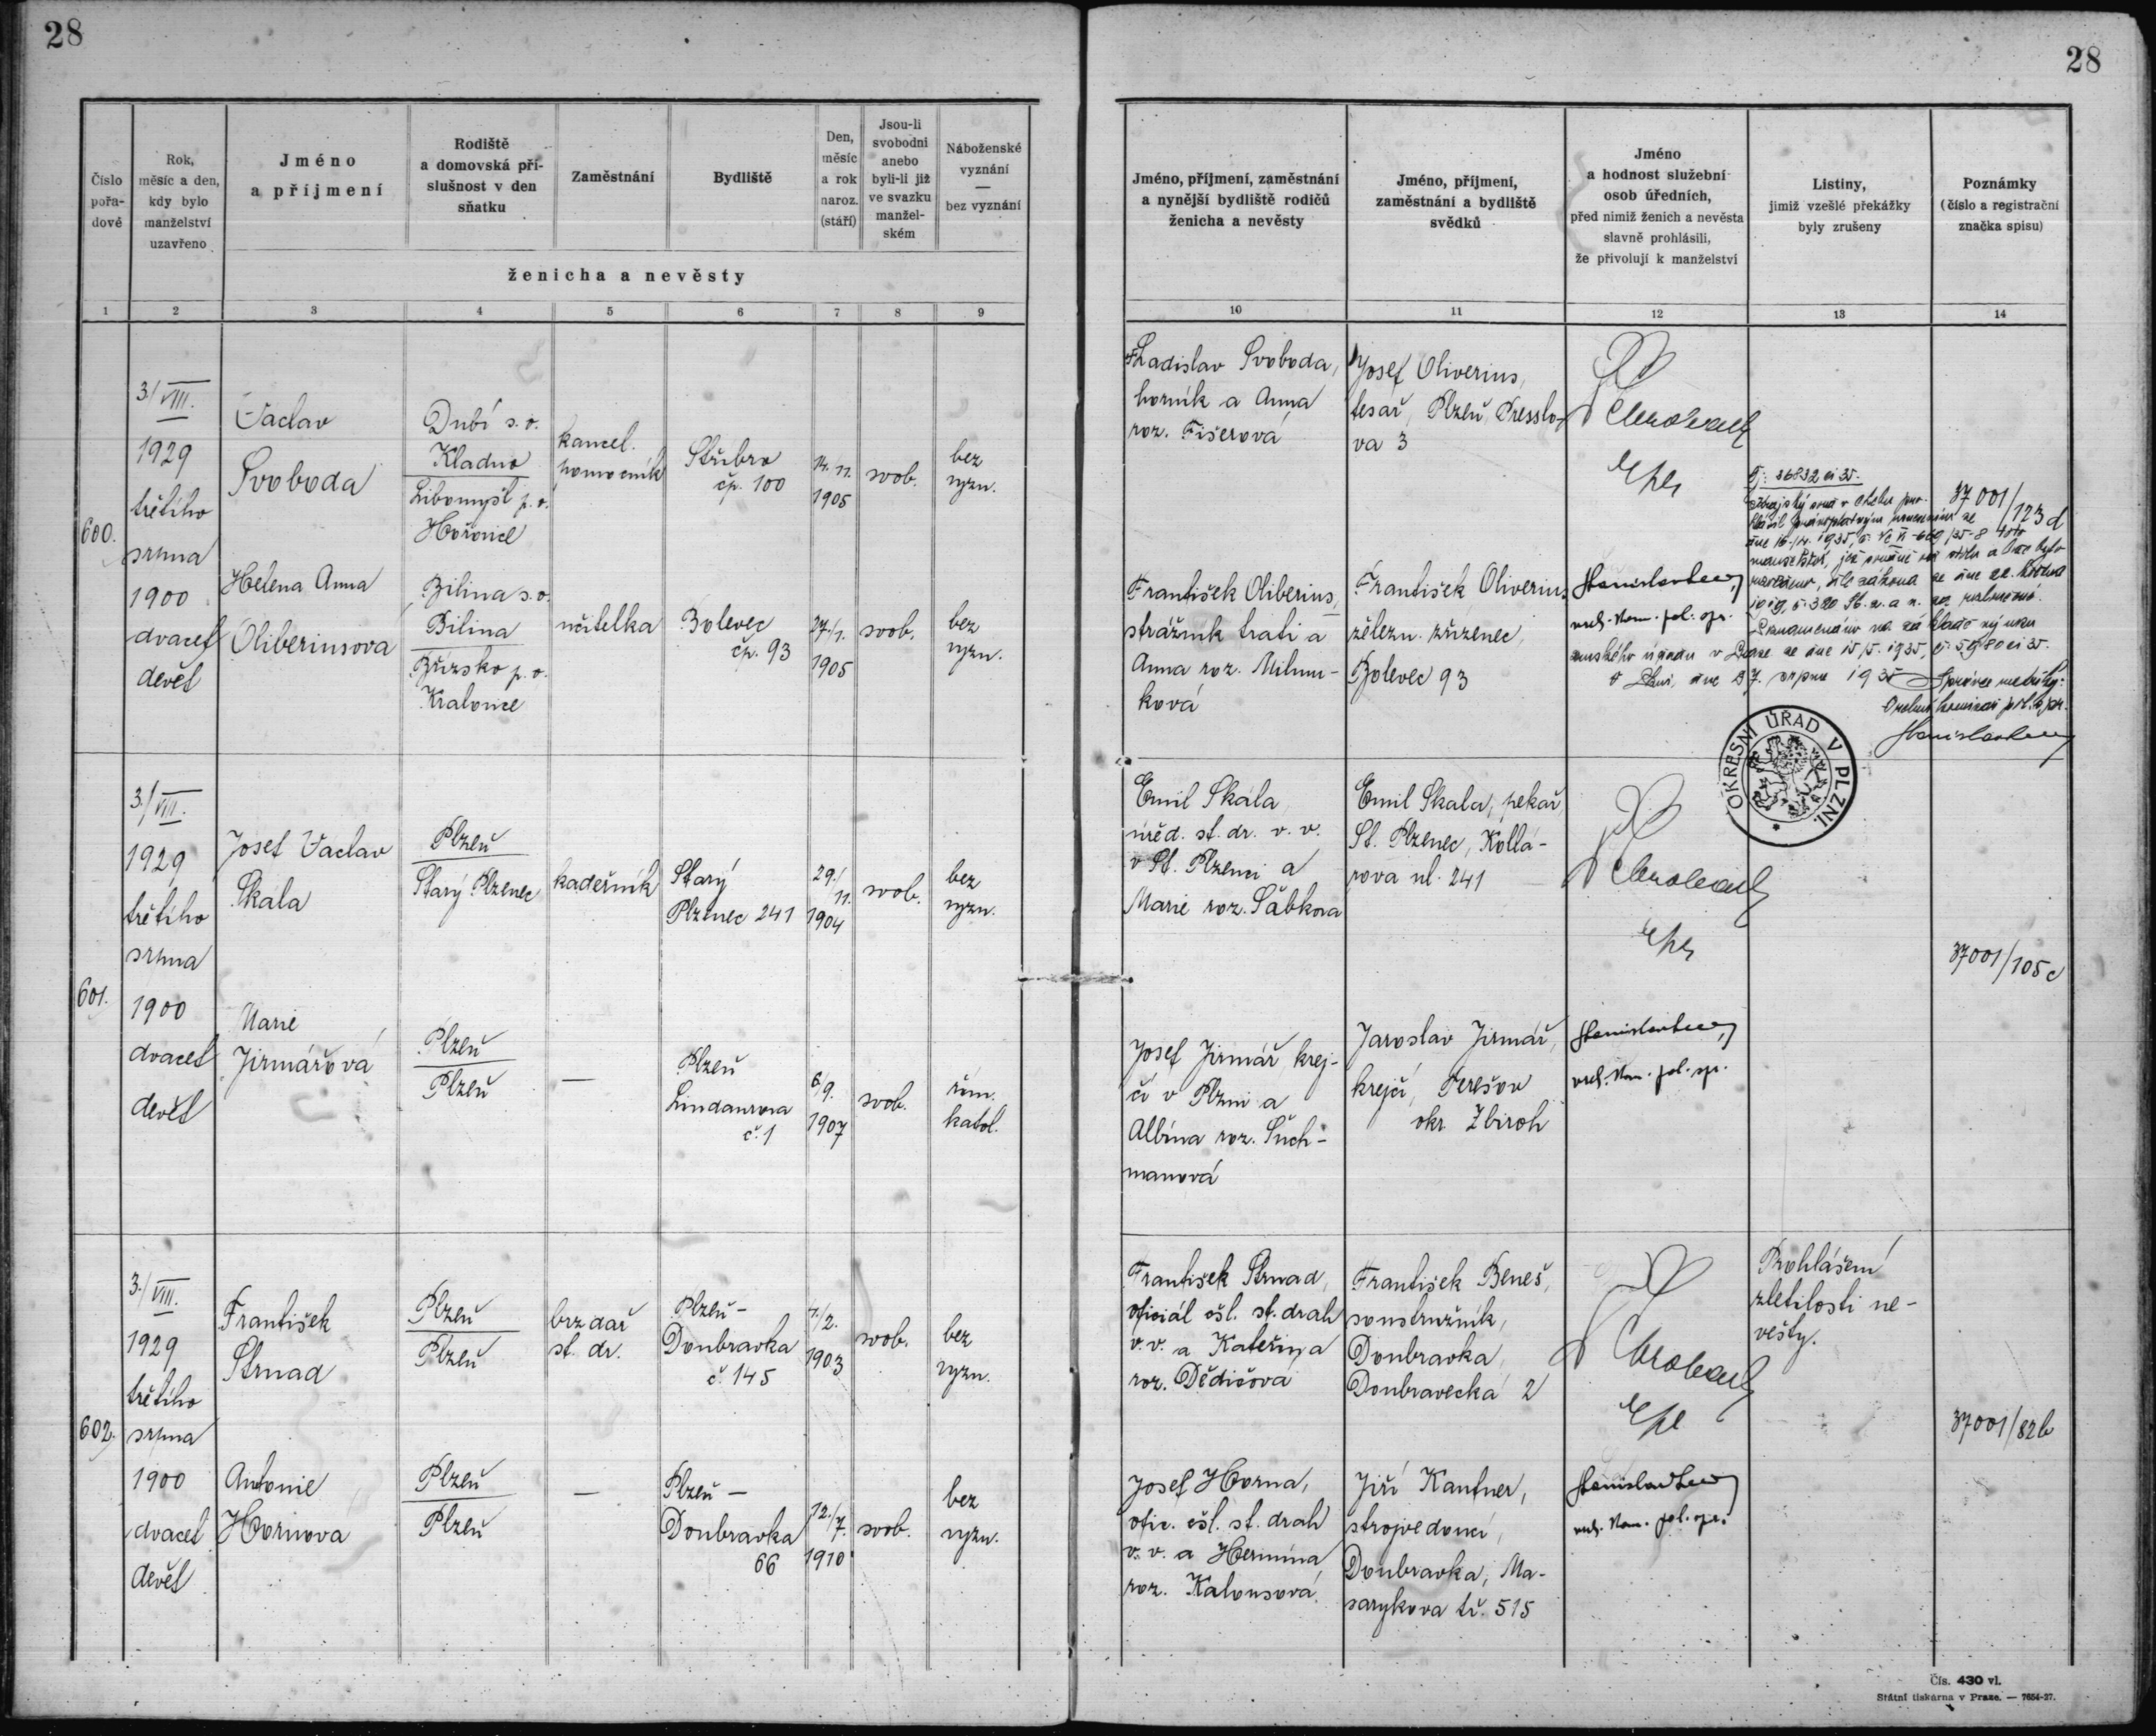 28
28
Číslo
pořa-
dové
Rok,
měsíc a den,
kdy bylo
manželství
uzavřeno
Jméno
a příjmení
Rodiště
a domovská pří-
slušnost v den
sňatku
Zaměstnání
Bydliště
Den,
měsíc
a rok
naroz.
(stáří)
Jsou-li
svobodni
anebo
byli-li již
ve svazku
manžel-
ském
Náboženské
vyznání
—
bez vyznání
ženicha a nevěsty
Jméno, příjmení, zaměstnání
a nynější bydliště rodičů
ženicha a nevěsty
Jméno, příjmení,
zaměstnání a bydliště
svědků
Jméno
a hodnost služební
osob úředních,
před nimiž ženich a nevěsta
slavně prohlásili,
že přivolují k manželství
Listiny,
jimiž vzešlé překážky
byly zrušeny
Poznámky
(číslo a registrační
značka spisu)
1 2 3 4 5 6 7 8 9
10 11 12 13 14
600.
3./VIII.
1929
třetího
srpna
1900
dvacet
devět
Václav
Svoboda
Dubí s. o.
Kladno
Libomyšl p. o.
Hořovice
kancel.
pomocník
Stříbro
čp. 100
14./11.
1905
svob.
bez
vyzn.
Helena Anna
Oliberiusová
Bílina s. o.
Bílina
Břízsko p. o.
Kralovice
učitelka
Bolevec
čp. 93
27./1.
1905
svob.
bez
vyzn.
Ladislav Svoboda,
horník a Anna
roz. Fišerová
Josef Oliverius,
tesař, Plzeň, Presslo-
va 3
František Oliberius,
strážník trati a
Anna roz. Milum-
ková
František Oliverius
železn. zřízenec,
Bolevec 93
vrch. kom. pol. spr.
Čj: 36832 ai 35.
dne 16./IV. 1935,
manželství, jež
dle zákona ze dne 22. května
1919, č. 320 Sb. z. a n. za rozloučené.
Zaznamenáno na základě výnosu
zemského úřadu v Praze ze dne 15./5. 1935,
dne 27. srpna 1935 Správce matriky:
37001/123 d
OKRESNÍ ÚŘAD V PLZNI.
601.
3./VIII.
1929
třetího
srpna
1900
dvacet
devět
Josef Václav
Skála
Plzeň
Starý Plzenec
kadeřník
Starý
Plzenec 241
29./
11.
1904
svob.
bez
vyzn.
Marie
Jirmářová
Plzeň
Plzeň
—
Plzeň
Lindaurova
č. 1
6./9.
1907
svob.
řím.
katol.
Emil Skála,
úřed. st. dr. v. v.
v St. Plzenci a
Marie roz. Šabková
Emil Skala, pekař,
St. Plzenec, Kollá-
rova ul. 241
Josef Jirmář, krej-
čí v Plzni a
Albína roz. Šuch-
manová
Jaroslav Jirmář,
krejčí, Terešov
okr. Zbiroh
vrch. kom. pol. spr.
37001/105 c
602.
3./VIII.
1929
třetího
srpna
1900
dvacet
devět
František
Strnad
Plzeň
Plzeň
brzdař
st. dr.
Plzeň -
Doubravka
č. 145
7./2.
1903
svob.
bez
vyzn.
Antonie
Hornová
Plzeň
Plzeň
—
Plzeň -
Doubravka
66
12./7.
1910
svob.
bez
vyzn.
František Strnad,
oficiál čsl. st. drah
v. v. a Kateřina
roz. Dědičová
František Beneš,
soustružník,
Doubravka,
Doubravecká 2
Prohlášení
zletilosti ne-
věsty.
Josef Horna,
ofic. čsl. st. drah
v. v. a Hermina
roz. Kalousová
Jiří Kantner,
strojvedoucí,
Doubravka, Ma-
sarykova tř. 515
vrch. kom. pol. spr.
37001/82 b
Čís. 430 vl.
Státní tiskárna v Praze. — 7654-27.